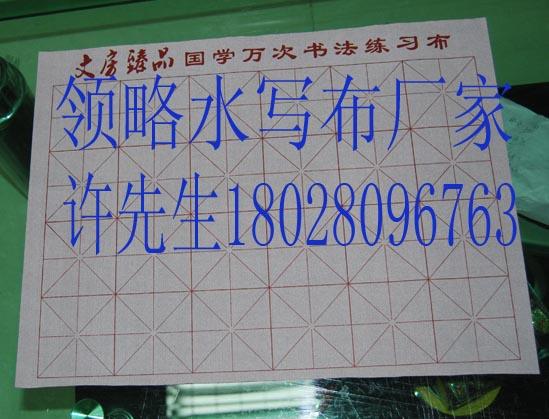 文房臻品 国学万次书法练习布
领略水写布厂家
许先生18028096763